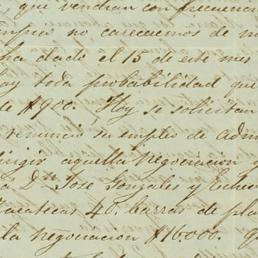 que vendran con frecuencia
no carecemos de
ha dado el 15 de este mes
hay toda probabilidad que
de $900. Hoy se solicitan
renuncio su empleo de admi
dirigir aquella negociacion y
a Dn Jose Gonzales y Echev
Zacatecas 40. barras de pla
la negociacion $16000. q